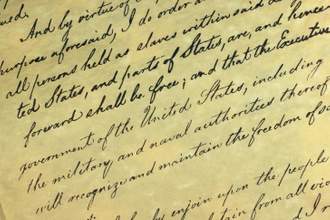 And by virtue of
purpose aforesaid, I do order a
all persons held as slaves within said
ted States, and parts of States, are, and hence
forward shall be free; and that the Executive
government of the United States, including
the military and naval authorities thereof
will recognize and maintain the freedom of sa
by enjoin upon the people
tain from all vio
and I